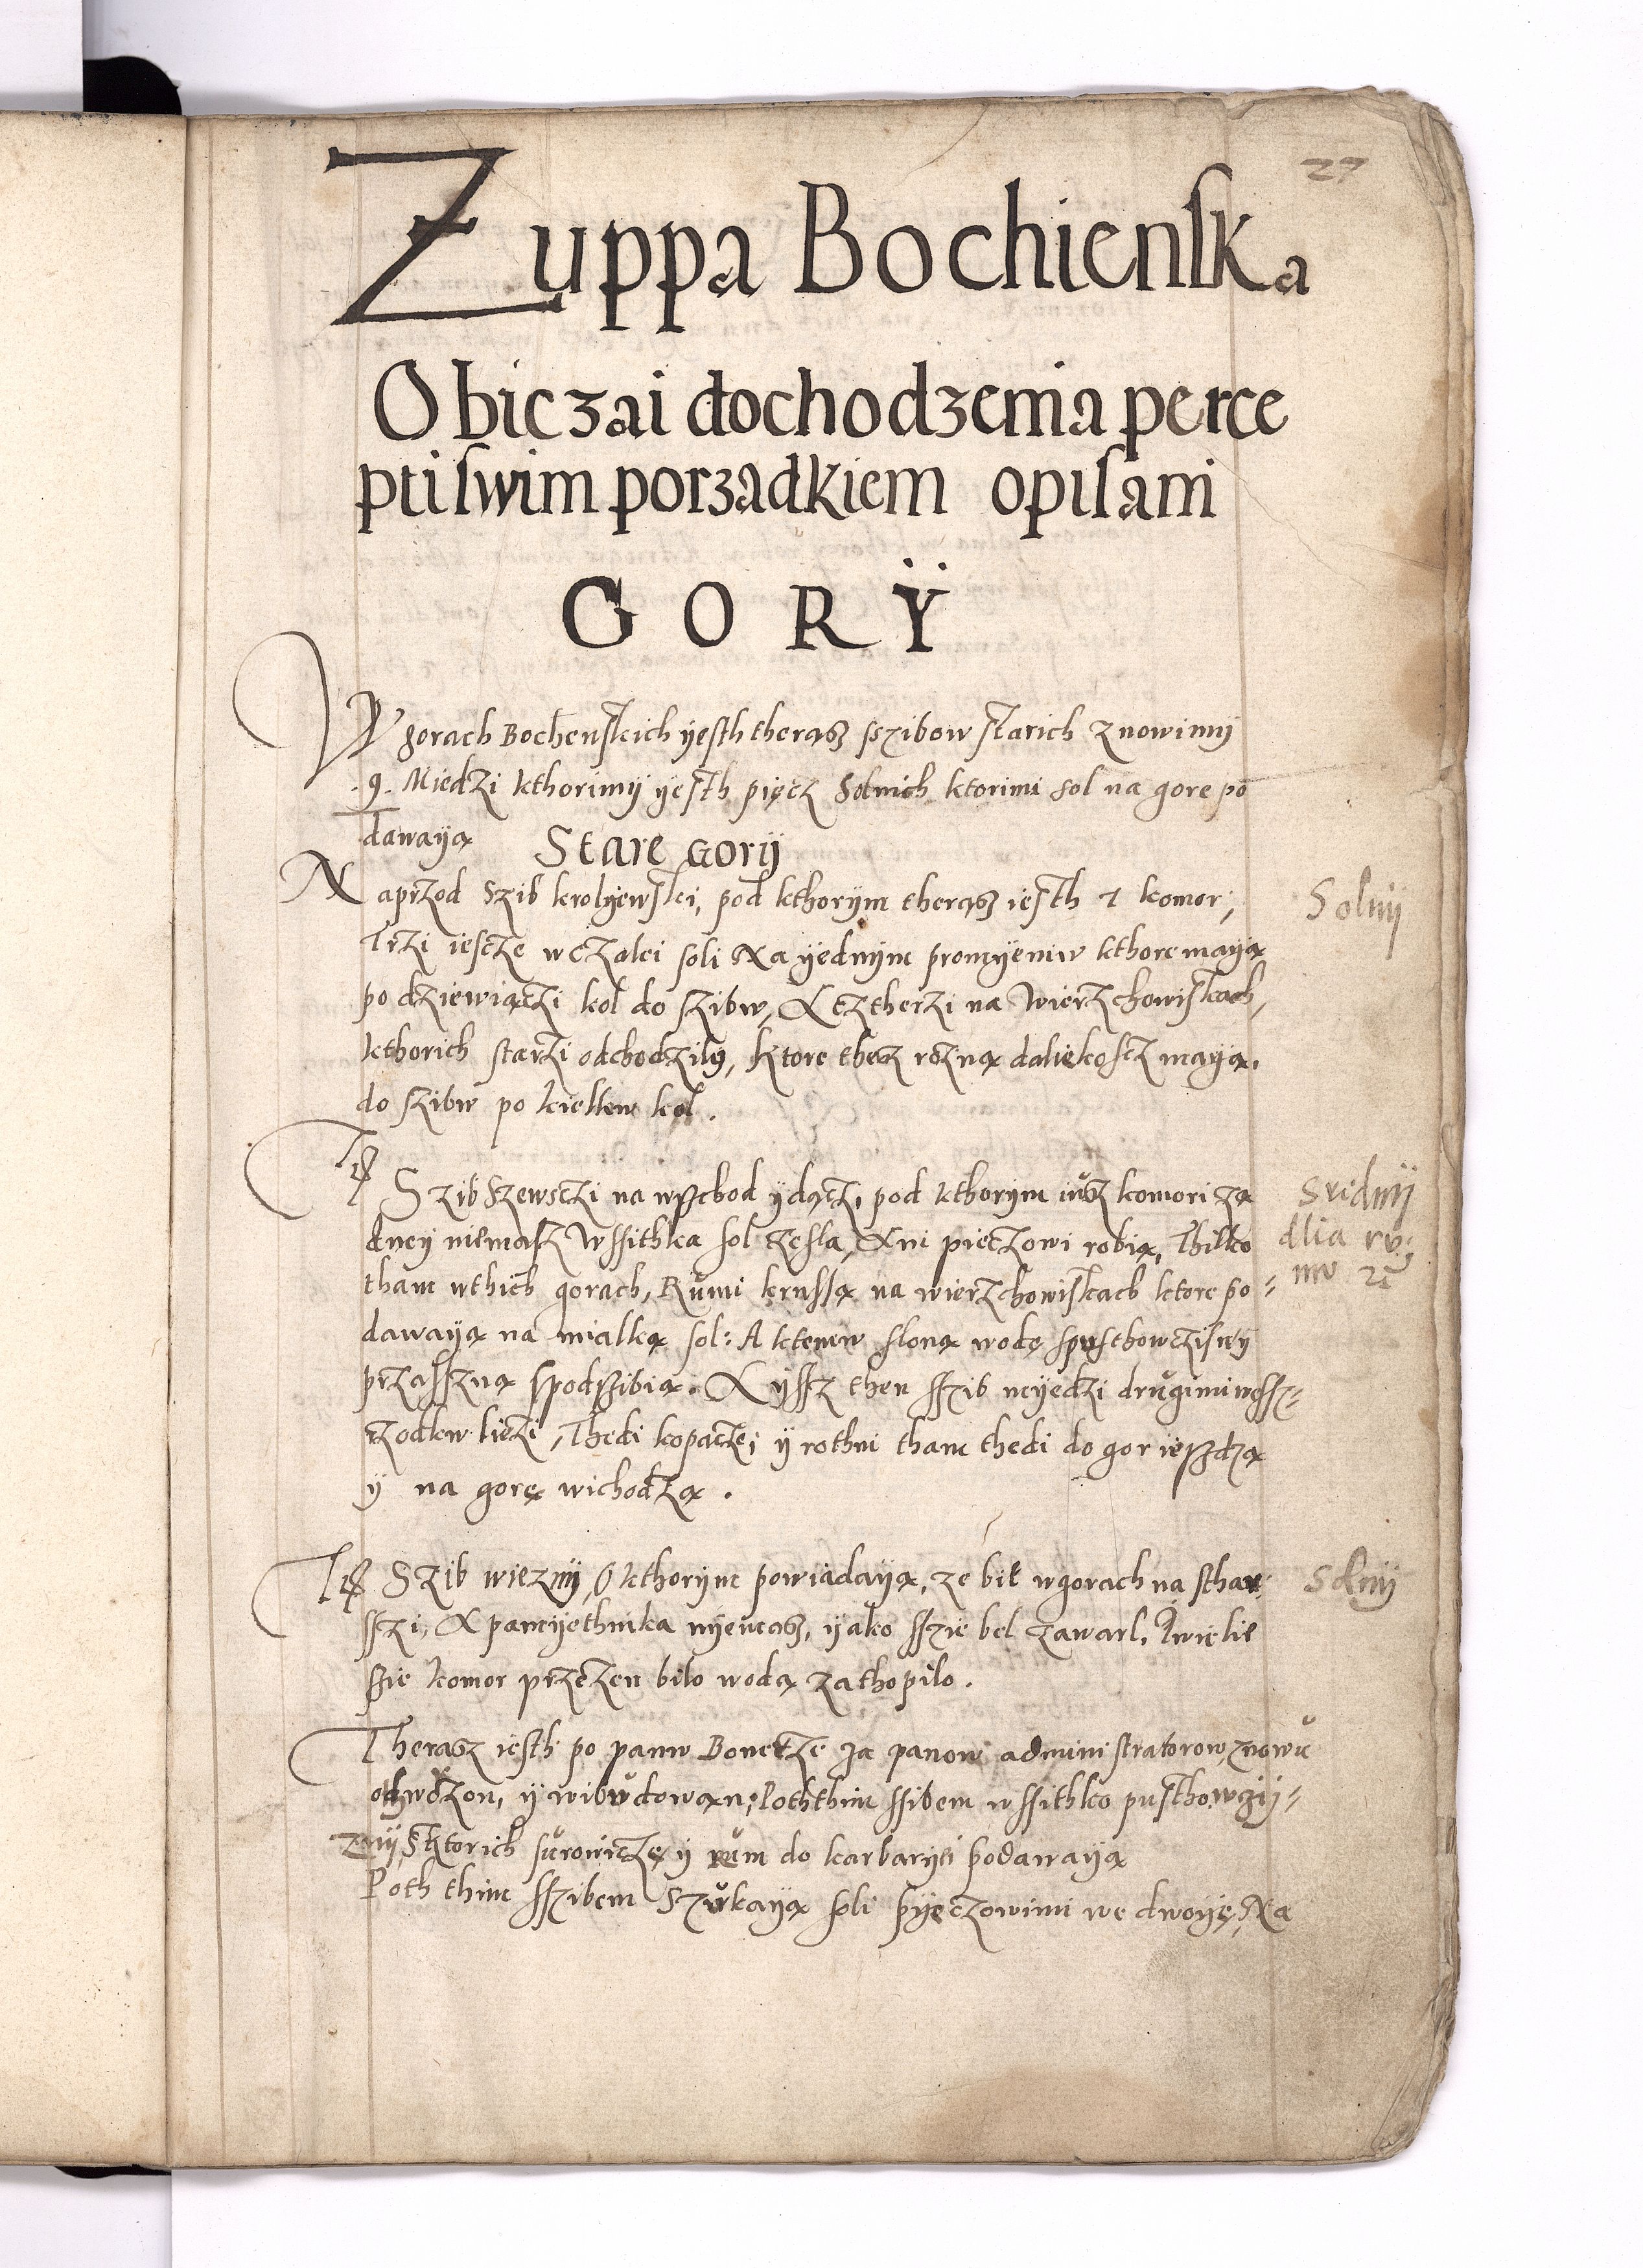 27
Zuppa Bochienſka
Obiczai dochodzenia perce
pti ſwim porządkiem opiſani
GORŸ
W gorach Bochenſkich ÿeſth theraſz ſzibow ſtarich z nowimÿ
.9. Miedzi kthorimÿ ÿeſth pięcz Solnich ktorimi sol na gore po
dawaÿą
Stare Gorÿ
Naprzod Szib krolÿewſki, pod kthorÿm theraſz ieſth 7 komor,
Solnÿ
Trzi ieſcze w czalei soli Na ÿednÿm promÿeniw kthore maÿą
po dziewiączi kol do ſzibw, A cztherzi na wierzchowiſkach,
kthorich starzi odchodzilÿ, ktore thez rożną daliekoſcz maÿą.
do ſzibw po kielkw kol.
Szib Szewſczi na wſzchod ÿdączi, pod kthorÿm iuż komori ża
Sridnÿ
dneÿ niemaſz Wſſithka ſol zeſla, Ani pieczowi robią, Thilko
dlia ru,
tham w thich gorach, Rumi kruſſą na wierzchowiſkach ktore po-
mv
dawaÿą na mialką ſol: A ktemw ſloną wodę spusthowcziſnÿ
przaſſzną ſpodſzibią. A ÿſſz then ſſzib mÿedzi drugimi weſſz-
rzodkw liezi, Thedi kopacze; ÿ rothni tham thedi do gor ieſzdzą
ÿ na gorę wichodzą.
Szib wiezny, O kthorÿm powiadaÿą, że bil w gorach na sthar
Solnÿ
ſſzi, A pamÿethnika nÿemaſz, ÿako ſſzie bel zawarl, A wielie
ſzie komor przezen bilo wodą zathopilo.
Theraſz ieſth po panw Bonercze za panow administratorow, znowu
ÿ wibudowan, Poth thim ſſibem wſſithko puſthowczÿ-
znÿ, Sktorich ſurowiczę ÿ rum do karbarÿi podawaÿą
Poth thim ſſzibem Szukaÿą ſoli pÿeczowimi we dwoÿę, Na